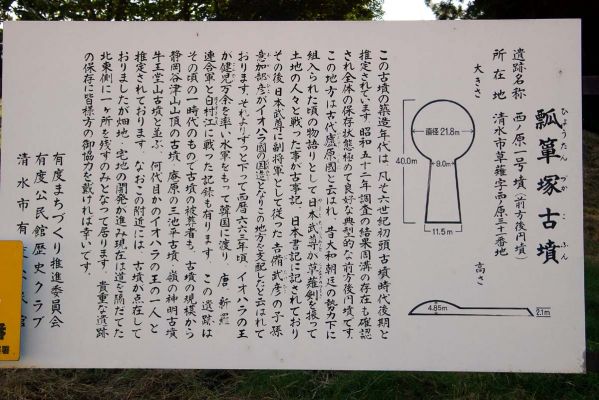 瓢簞塚古墳
ひょうたんづかこふん
遺跡名称 西ノ原一号墳(前方後円墳)
所在地 清水市草薙字西ノ原三十一番地
大きさ
直径21.8m
40.0m
9.0m
11.5m
高さ
4.85m
2.1m
この古墳の築造年代は、凡そ六世紀初頭古墳時代後期と
推定されています。昭和五十二年調査の結果周溝の存在も確認
され全体の保存状態極めて良好な典型的な前方後円墳です。
この地方は古代廬原國と云はれ、昔大和朝廷の勢力下に
組入られた頃の物語りとして日本武尊が草薙剣を振って
土地の人々と戦った事が古事記、日本書記に記されており
その後日本武尊に副将軍として従った吉備武彦の子孫
意加部彦がイオハラ國の国造となりこの地方を支配したと云はれて
おります。それよりずっと下って西暦六六三年頃、イオハラの王
が健児万余を率い水軍をもって韓国に渡り、唐、新羅
連合軍と白村江に戦った記録も有ります。この遺跡は
その頃の一時代のもので古墳の被葬者も、古墳の規模から
静岡谷津山山頂の古墳、庵原の三池平古墳、嶺の神明古墳
牛王堂山古墳と並ぶ、何代目かのイオハラの王の一人と
推定されております。なおこの附近には、古墳が点在して
おりましたが畑地、宅地の開発が進み現在は道を隔だてた
北東側に一ヶ所を残すのみとなって居ります。貴重な遺跡
の保存に皆様方の御協力を戴ければ幸いです。
有度まちづくり推進委員会
有度公民館歴史クラブ
清水市有度